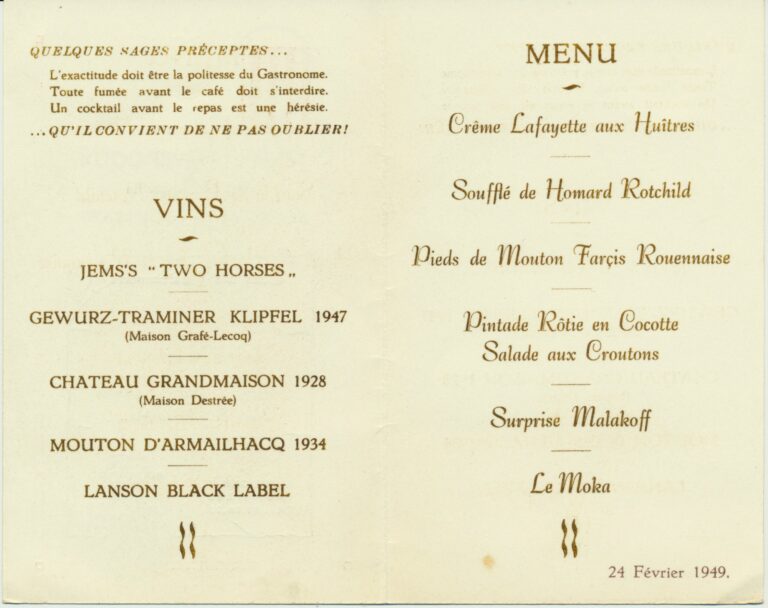 QUELQUES SAGES PRÉCEPTES...
L'exactitude doit être la politesse du Gastronome.
Toute fumée avant le café doit s'interdire.
Un cocktail avant le repas est une hérésie.
...QU'IL CONVIENT DE NE PAS OUBLIER!
VINS
JEMS'S " TWO HORSES „
GEWURZ-TRAMINER KLIPFEL 1947
(Maison Grafé-Lecoq)
CHATEAU GRANDMAISON 1928
(Maison Destrée)
MOUTON D'ARMAILHACQ 1934
LANSON BLACK LABEL
MENU
Crême Lafayette aux Huîtres
Soufflé de Homard Rotchild
Pieds de Mouton Farçis Rouennaise
Pintade Rôtie en Cocotte
Salade aux Croutons
Surprise Malakoff
Le Moka
24 Février 1949.